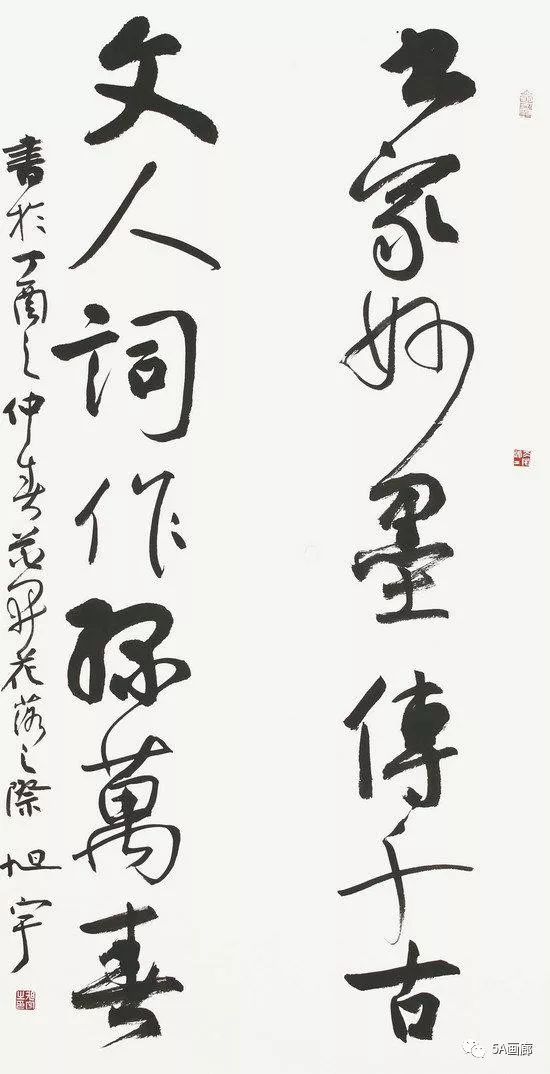 书家妙墨傳千古
文人詞作緑萬春
書於丁酉之仲春花開花落之際 旭宇
5A画廊